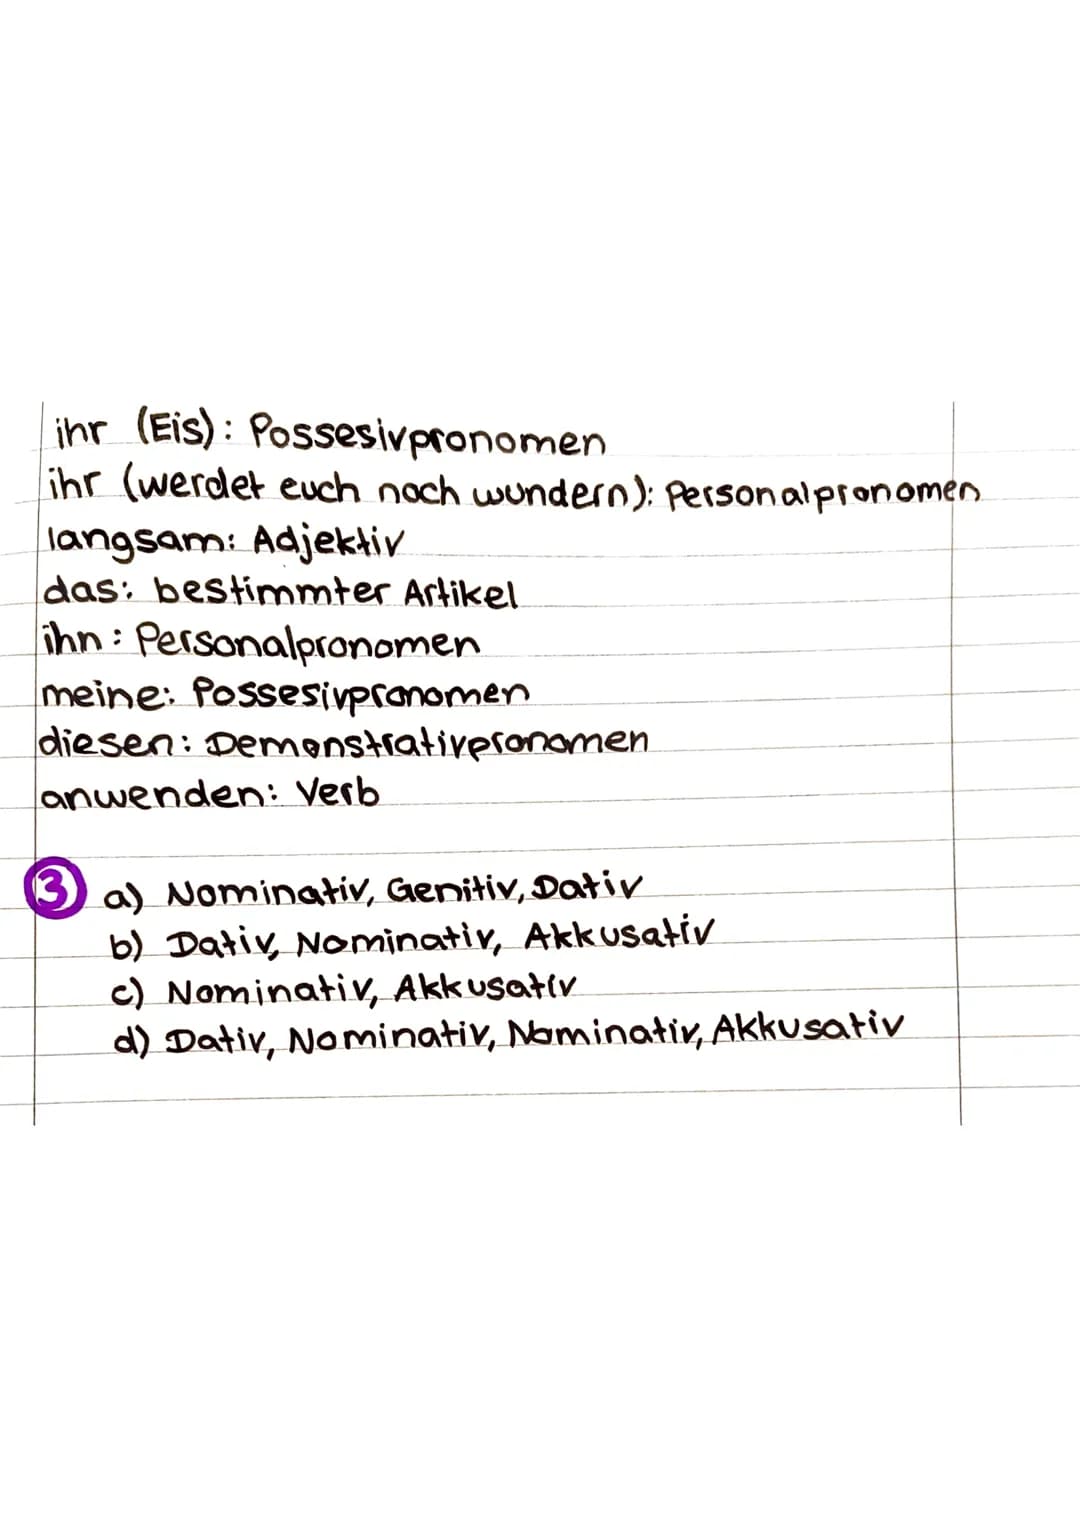 ihr (Eis): Possesivpronomen
ihr (werdet euch noch wundern): Personalpronomen
langsam: Adjektiv
das: bestimmter Artikel
ihn: Personalpronomen
meine: Possesivpronomen
diesen: Demonstrativpronomen
anwenden: Verb
3 a) Nominativ, Genitiv, Dativ
b) Dativ, Nominativ, Akkusativ
c) Nominativ, Akkusativ
d) Dativ, Nominativ, Nominativ, Akkusativ